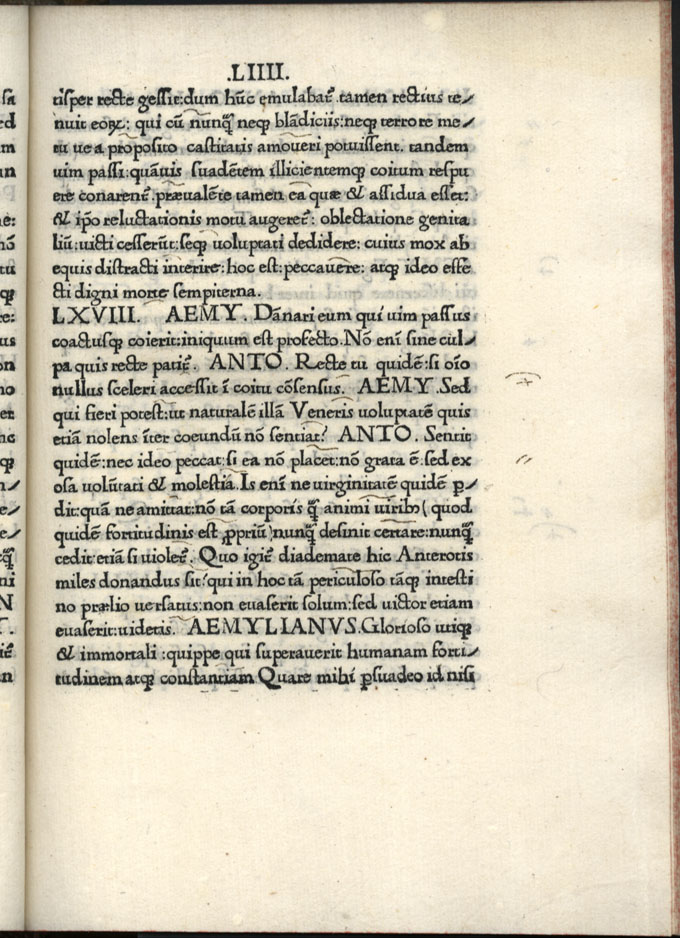 .LIIII.
tisper recte gessit:dum hũc ęmulabat᷑ .tamen rectius te⸗
nuit eoꝝ: qui cũ nunq̃ neqꝫ blãdiciis:neqꝫ terrore me⸗
tu ue a proposito castitatis amoueri potuissent. tandem
uim passi:quãuis suadẽtem illicientemqꝫ coitum respu
ere conarent᷑ .præualẽte tamen ea quæ & assidua esset:
& ip̃o reluctationis motu augeret᷑: oblectatione genita
liũ:uicti cesserũt:seqꝫ uoluptati dedidere: cuius mox ab
equis distracti interire:hoc est:peccauere: atqꝫ ideo effe
cti digni morte sempiterna.
LXVIII. AEMY. Dãnari eum qui uim passus
coactusqꝫ coierit:iniquum est profecto.Nõ enĩ sine cul⸗
pa quis recte patit᷑. ANTO. Recte tu quidẽ:si oĩo
nullus sceleri accessit ĩ coitu cõsensus. AEMY.Sed
qui fieri potest:ut naturalẽ illã Veneris uoluptatẽ quis
etiã nolens ĩter coeundũ nõ sentiat? ANTO. Sentit
quidẽ:nec ideo peccat:si ea nõ placet:nõ grata ẽ:sed ex
osa volũtati & molestiã.Is enĩ ne uirginitatẽ quidẽ ꝑ⸗
dit:quã ne amittat:nõ tã corporis q̃ animi uiribꝰ( quod
quidẽ fortitudinis est ꝓpriũ)nunq̃ desinit certare:nunq̃
cedit:etiã si uiolet᷑. Quo igit᷑ diademate hic Anterotis
miles donandus sit?qui in hoc tã periculoso tãqꝫ intesti
no prælio uersatus:non euaserit solum:sed uictor etiam
euaserit:uidetis. AEMYLIANVS.Glorioso utiqꝫ
& immortali :quippe qui superauerit humanam forti⸗
tudinem atqꝫ constantiam Quare mihi ꝑsuadeo id nisi